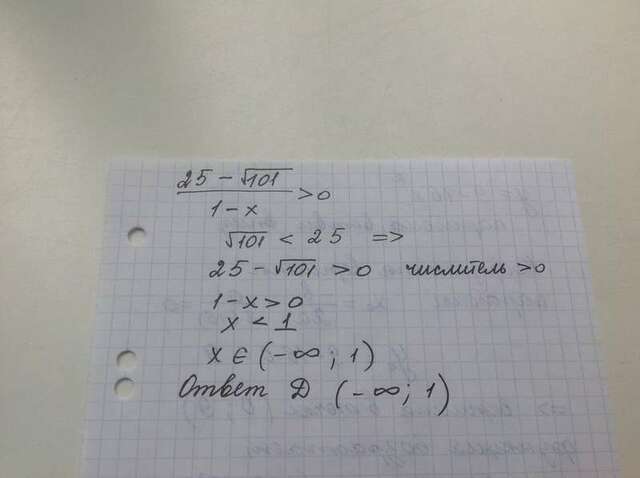 25 − √101
───────── > 0
1 − x
√101 < 25 =>
25 − √101 > 0 числитель > 0
1 − x > 0
x < 1
x ∈ (−∞; 1)
Ответ D (−∞; 1)